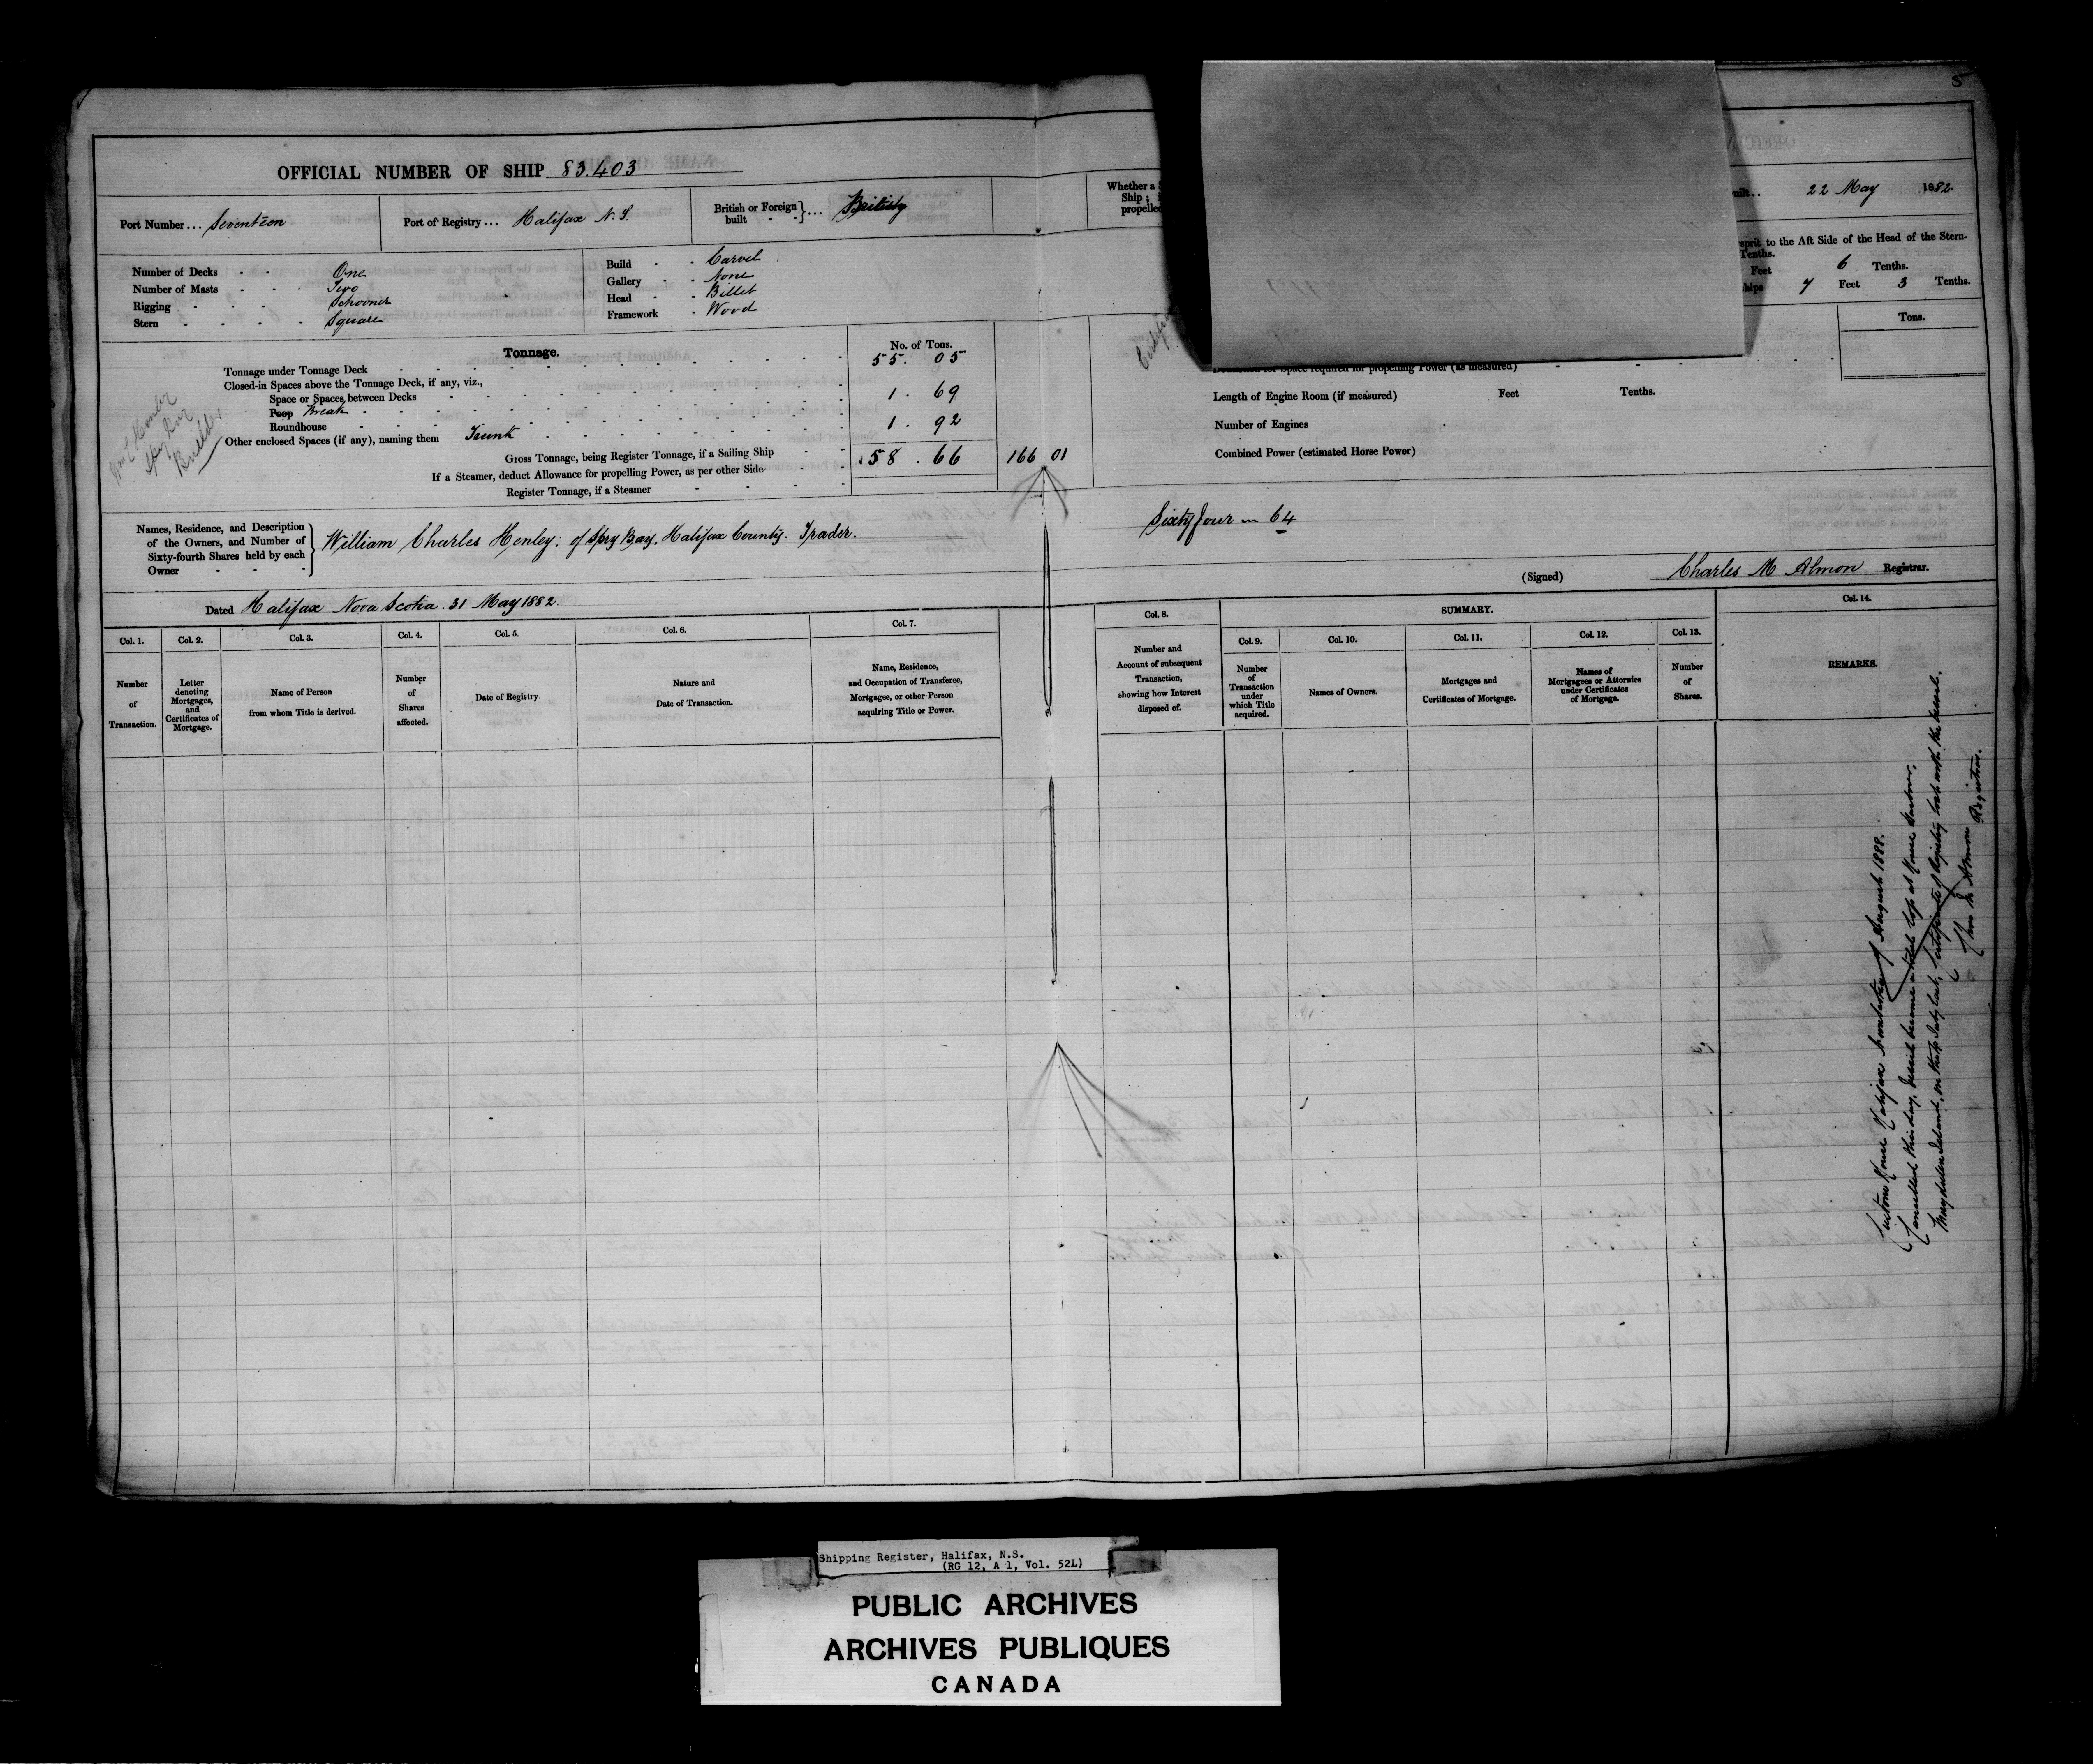 5
OFFICIAL NUMBER OF SHIP 83.403
Port Number ... Seventeen Port of Registry ... Halifax N.S. British or Foreign built - - } ... British
Whether a
Ship;
propelled
uilt .. 22 May 1882
Number of Decks - - One
Number of Masts - - - Two
Rigging - - - - Schooner
Stern - - - - Square
Build - - Carvel
Gallery - - None
Head - - Billet
Framework - Wood
sprit to the Aft Side of the Head of the Stern-
Tenths.
Feet 6 Tenths.
ships 7 Feet 3 Tenths.
Tonnage. No. of Tons.
Tonnage under Tonnage Deck 55. 05
Closed-in Spaces above the Tonnage Deck, if any, viz.,
Space or Spaces between Decks 1. 69
Poop Break
Roundhouse 1. 92
Other enclosed Spaces (if any), naming them Trunk
Gross Tonnage, being Register Tonnage, if a Sailing Ship 58. 66 166 01
If a Steamer, deduct Allowance for propelling Power, as per other Side
Register Tonnage, if a Steamer
Builder
Tons.
for Space required for propelling Power (as measured)
Length of Engine Room (if measured) Feet Tenths.
Number of Engines
Combined Power (estimated Horse Power)
Names, Residence, and Description
of the Owners, and Number of
Sixty-fourth Shares held by each
Owner - - -
William Charles Henley: of Spry Bay. Halifax County. Trader. Sixty four — 64
(Signed) Charles M Almon Registrar.
Dated Halifax Nova Scotia. 31 May 1882.
SUMMARY.
Col. 1. Col. 2. Col. 3. Col. 4. Col. 5. Col. 6. Col. 7. Col. 8. Col. 9. Col. 10. Col. 11. Col. 12. Col. 13. Col. 14.
Number of Transaction.
Letter denoting Mortgages, and Certificates of Mortgage.
Name of Person from whom Title is derived.
Number of Shares affected.
Date of Registry.
Nature and Date of Transaction.
Name, Residence, and Occupation of Transferee, Mortgagee, or other Person acquiring Title or Power.
Number and Account of subsequent Transaction, showing how Interest disposed of.
Number of Transaction under which Title acquired.
Names of Owners.
Mortgages and Certificates of Mortgage.
Names of Mortgagees or Attornies under Certificates of Mortgage.
Number of Shares.
REMARKS.
Custom House Halifax Nova Scotia August 1888.
Cancelled this day, Vessel became a total loss at
Magdalen Island, on July last, Certificate of Registry lost with the vessel.
Chas M Almon
Registrar.
Shipping Register, Halifax, N.S.
(RG 12, A 1, Vol. 52L)
PUBLIC ARCHIVES
ARCHIVES PUBLIQUES
CANADA